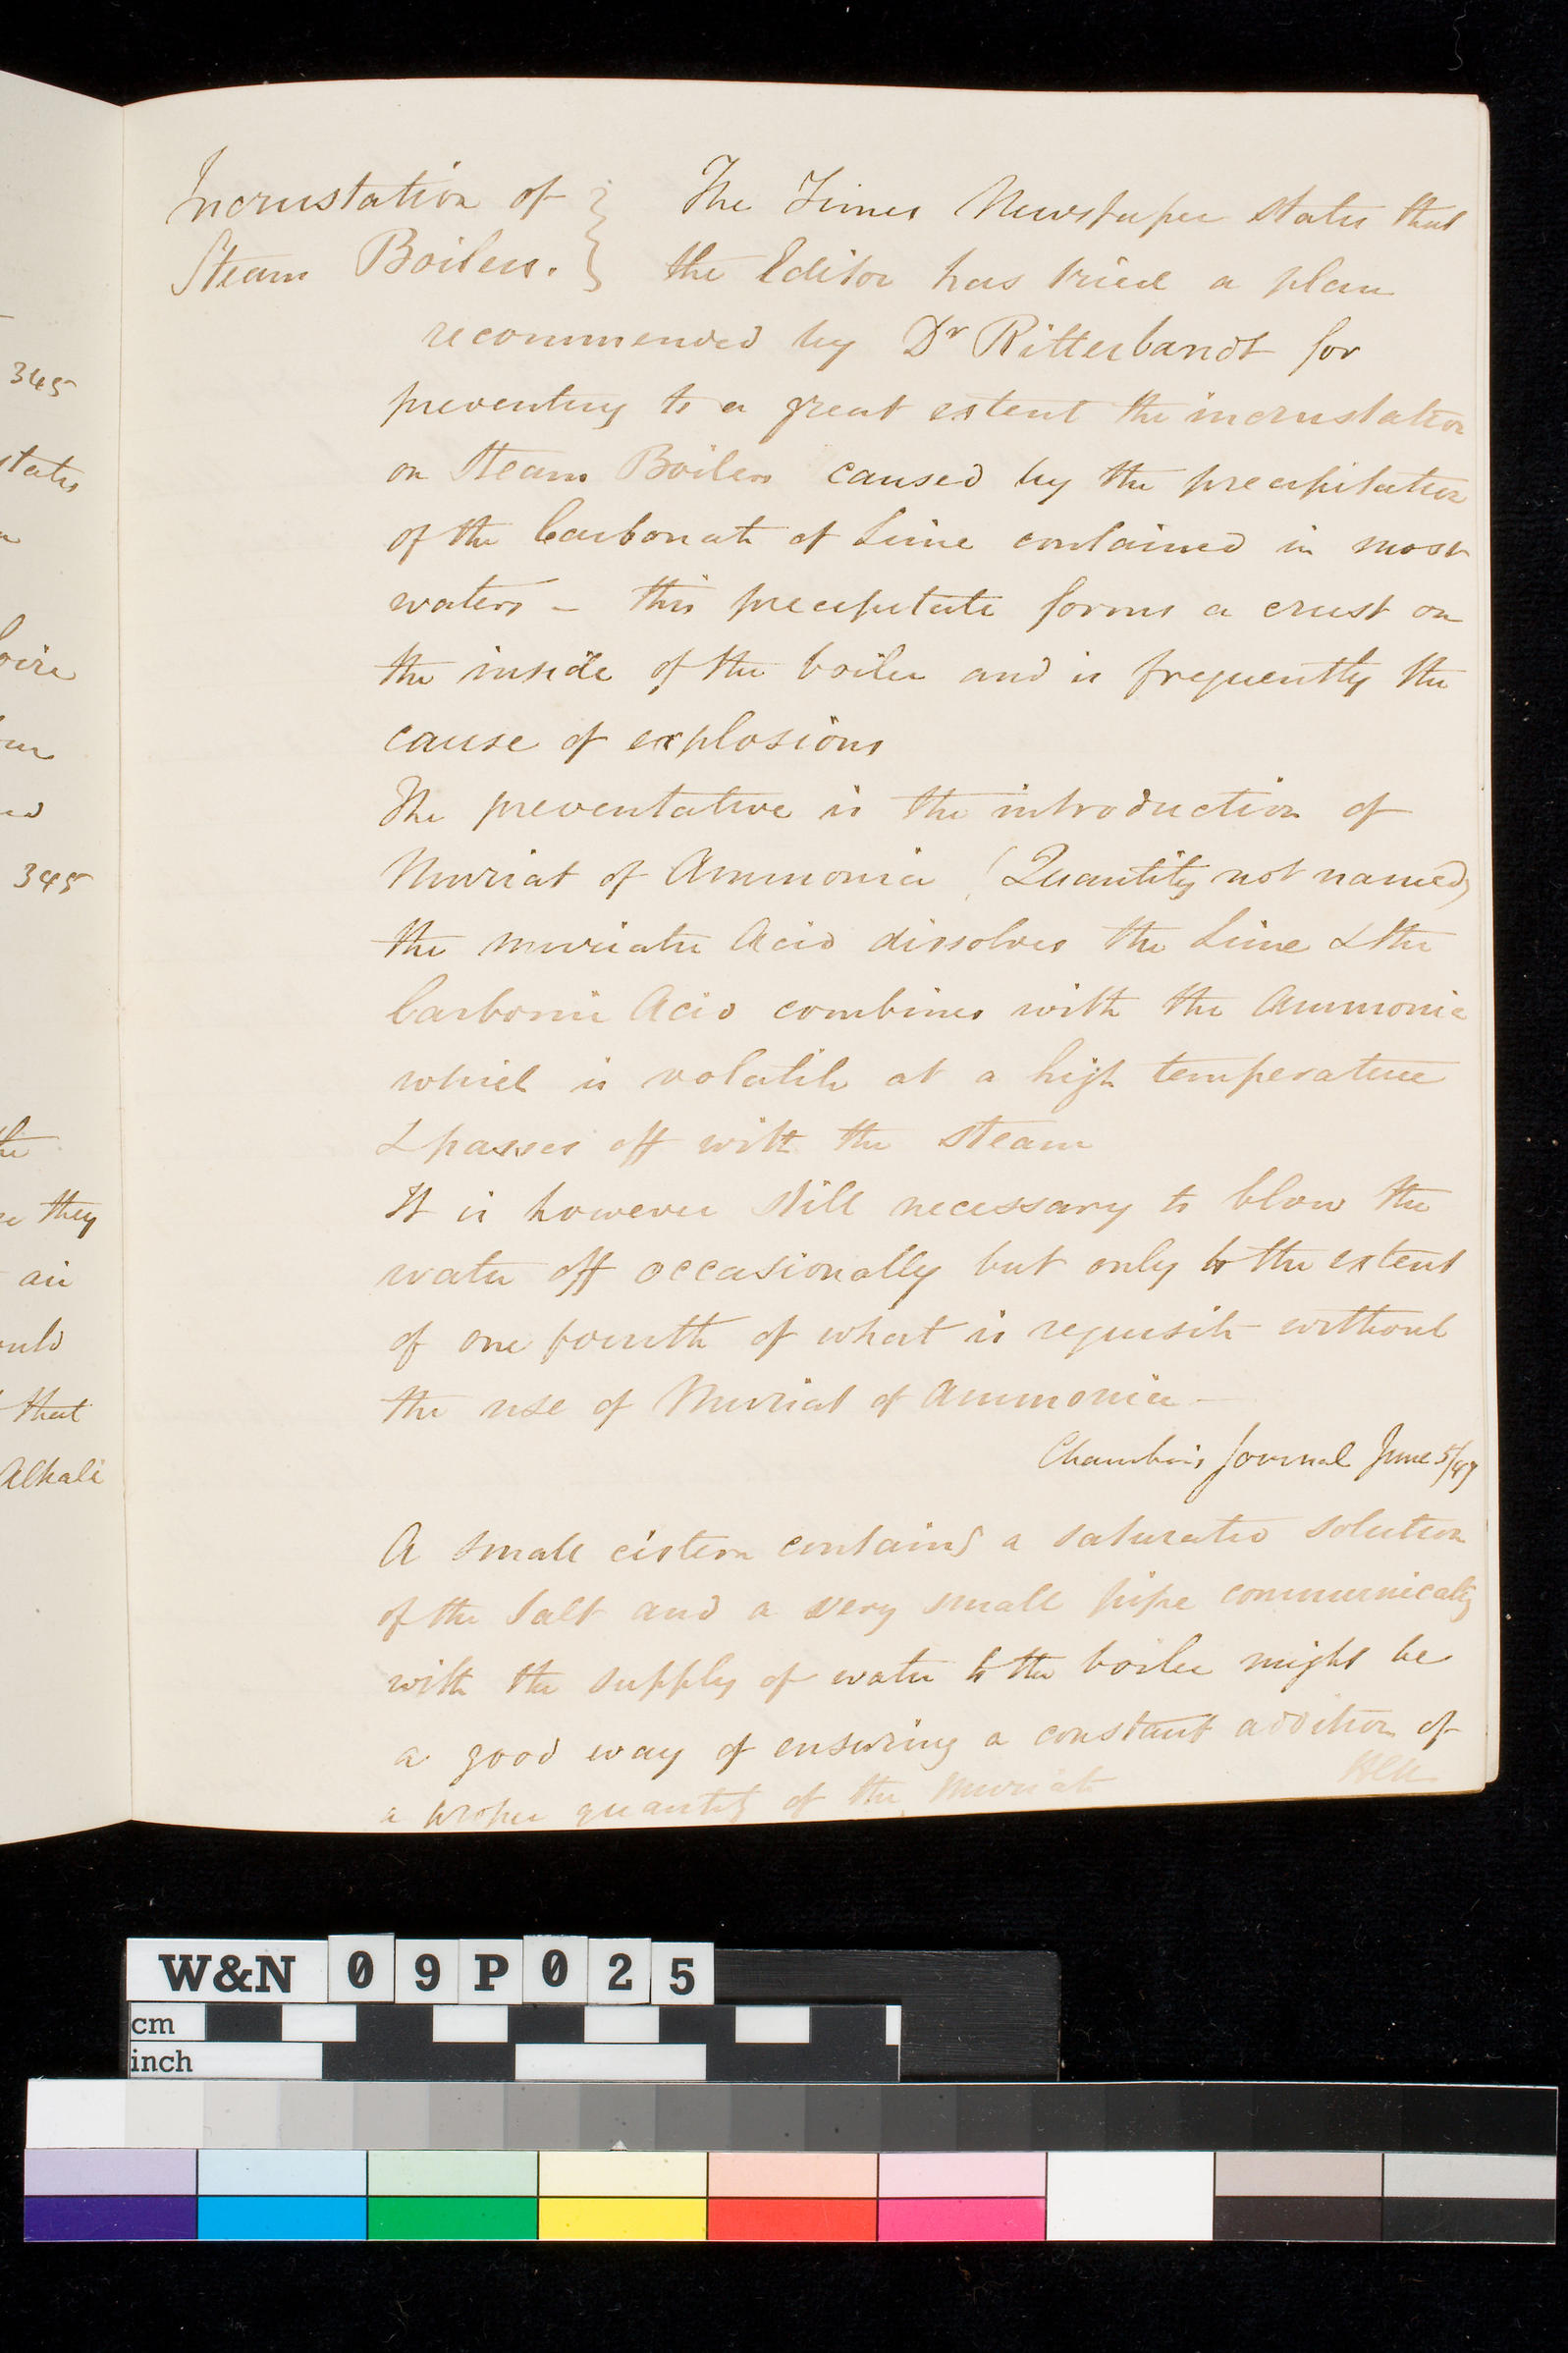 Incrustation of } The Times Newspaper states that
Steam Boilers. } the Editor has tried a plan
recommended by Dr Ritterbandt for
preventing to a great extent the incrustation
on Steam Boilers caused by the precipitation
of the Carbonate of Lime contained in most
waters - this precipitate forms a crust on
the inside of the boiler and is frequently the
cause of explosions
The preventative is the introduction of
Muriat of Ammonia (Quantity not named)
the muriatic Acid dissolves the Lime & the
Carbonic Acid combines with the Ammonia
which is volatile at a high temperature
& passes off with the steam
It is however still necessary to blow the
water off occasionally but only to the extent
of one fourth of what is requisite without
the use of Muriat of Ammonia -
Chambers Journal June 5/47
A small cistern containg a saturated solution
of the Salt and a very small pipe communicatg
with the supply of water to the boiler might be
a good way of ensuring a constant addition of
a proper quantity of the Muriate
345
states
345
the
they
air
that
Alkali
W&N 09P025
cm
inch